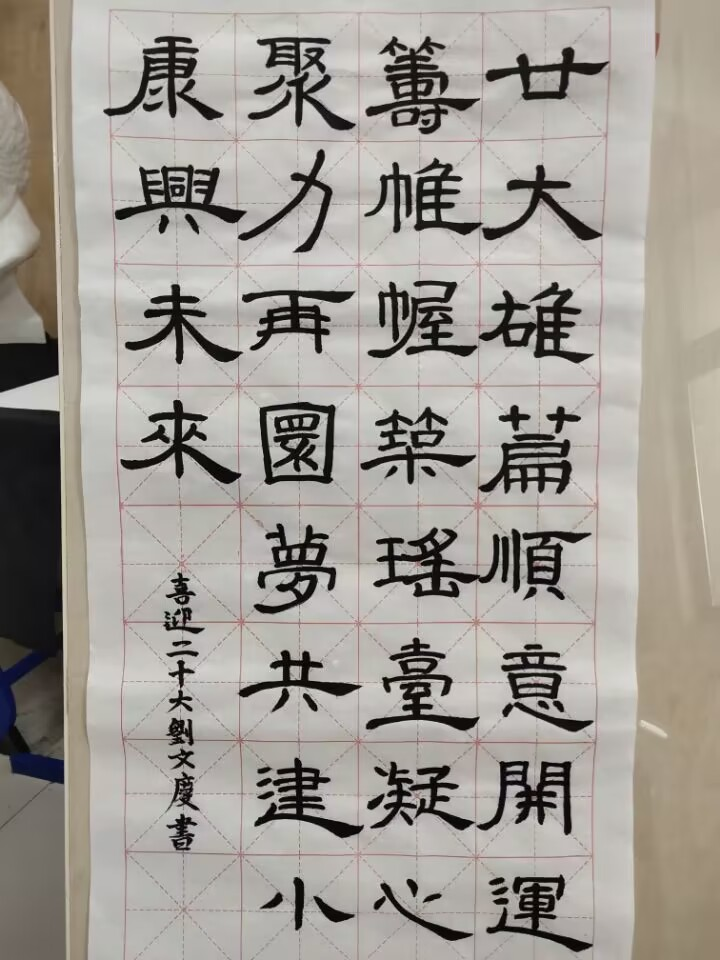 廿大雄篇順意開運
籌帷幄築瑤臺凝心
聚力再圜夢共建小
康興未來
喜迎二十大劉文慶書